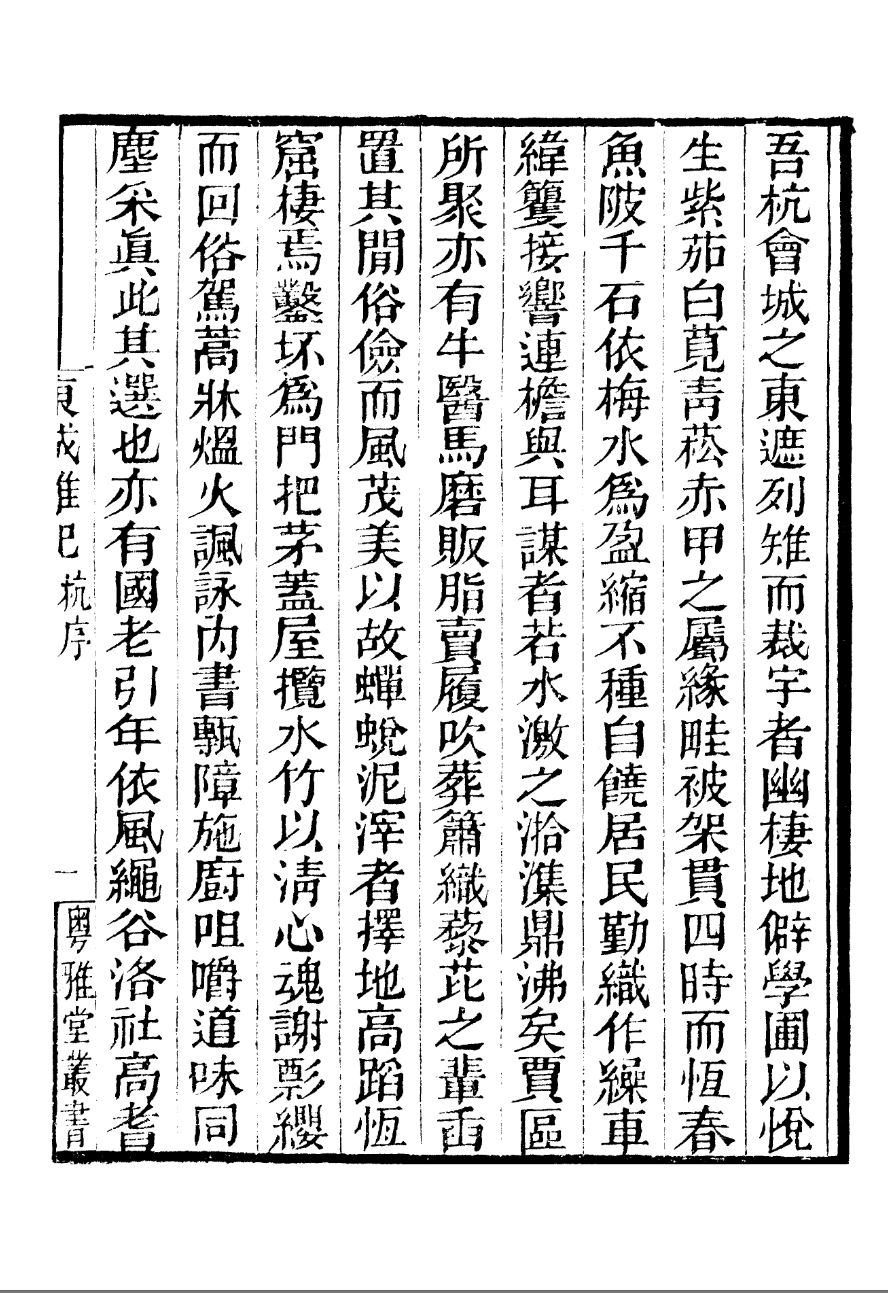 吾杭會城之東遮列雉而裁宇者幽棲地僻學圃以悅
生紫茄白莧青菘赤甲之屬緣畦被架貫四時而恆春
魚陂千石依梅水為盈縮不種自饒居民勤織作繰車
緯籰接響連檐與耳謀者若水激之㵎潗鼎沸矣賈區
所聚亦有牛醫馬磨販脂賣履吹葬簫織藜芘之輩臿
置其閒俗儉而風茂美以故蟬蛻泥滓者擇地高蹈恆
窟棲焉鑿坏為門把茅蓋屋攬水竹以淸心魂謝影纓
而回俗駕蒿牀熅火諷詠內書甎障施廚咀嚼道味同
塵采眞此其選也亦有國老引年依風繩谷洛社高耆
東城雜記 杭序 一 粵雅堂叢書